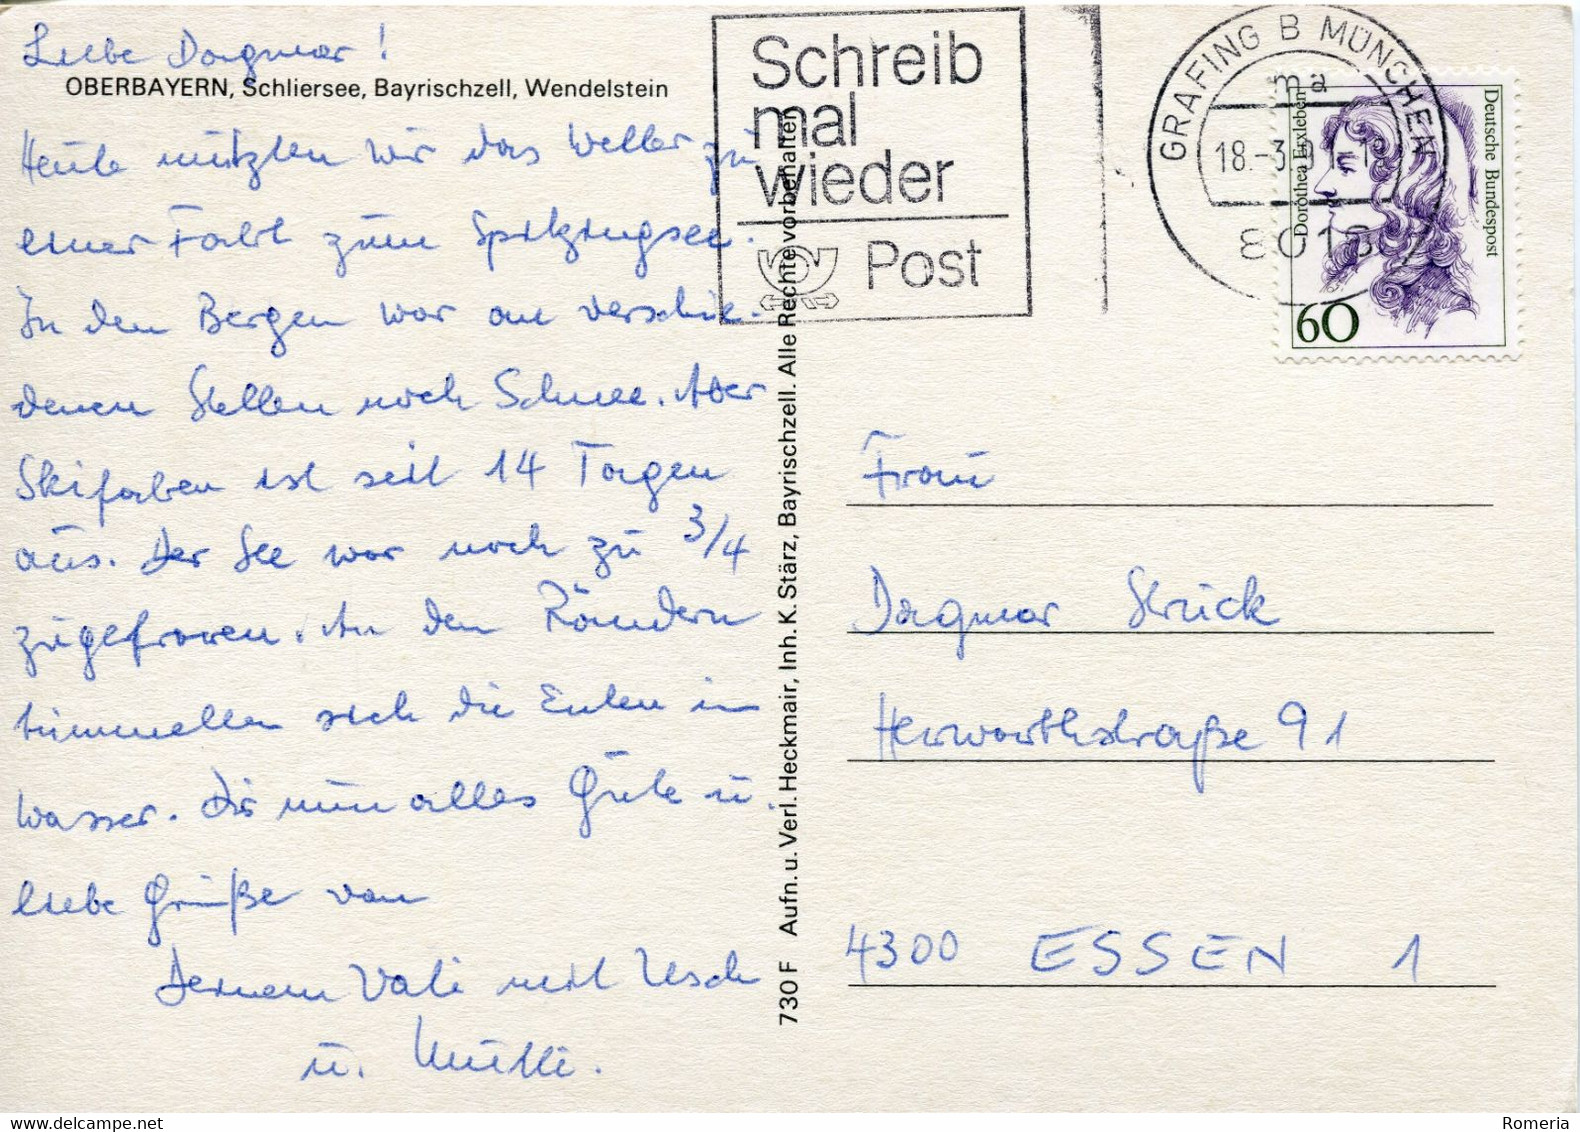 Liebe Dagmar!
OBERBAYERN, Schliersee, Bayrischzell, Wendelstein
Heute nützten wir das Wetter zu
einer Fahrt zum Spitzingsee.
In den Bergen war an verschie-
denen Stellen noch Schnee. Aber
Skifahren ist seit 14 Tagen
aus. Der See war noch zu 3/4
zugefroren. An den Rändern
tummelten sich die Enten im
Wasser. Dir nun alles Gute u.
liebe Grüße von
Deinem Vati mit Usch
u. Mutti.
730 F Aufn. u. Verl. Heckmair, Inh. K. Stärz, Bayrischzell. Alle Rechte vorbehalten
Schreib
mal
wieder
Post
GRAFING B MÜNCHEN
ma
18.-3.9
8018
Deutsche Bundespost
Dorothea Erxleben
60
Frau
Dagmar Struck
Herwarthstraße 91
4300 ESSEN 1
Romeria